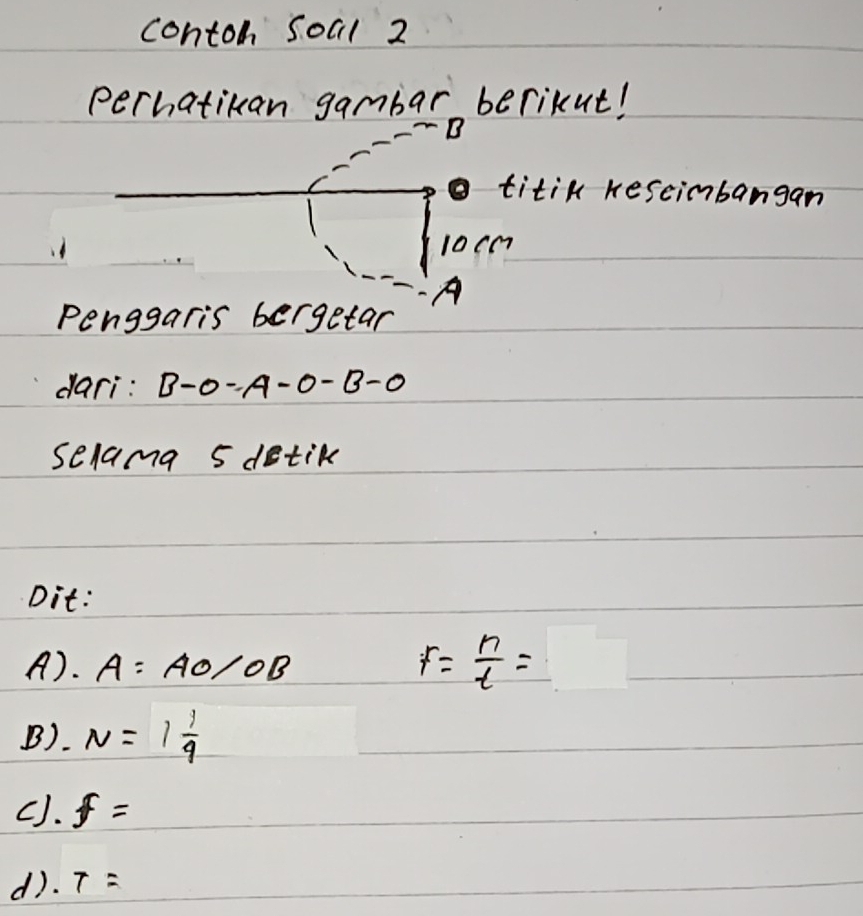 Contoh Soal 2
Perhatikan gambar berikut!
B
O titik keseimbangan
10 cm
A
Penggaris bergetar
dari: B-O-A-O-B-O
Selama 5 detik
Dit:
A). A = AO/OB f = n/t =
B). N = 1 1/4
C). f =
d). T =